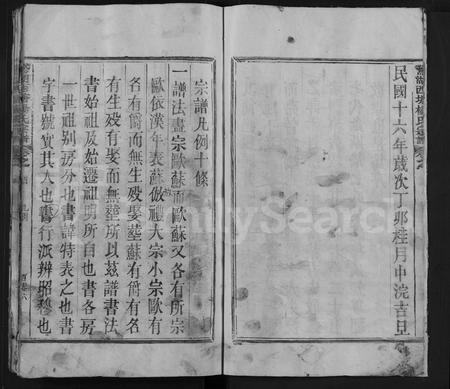 民國十六年歲次丁卯桂月中浣吉旦
宗譜凡例十條
一譜法書宗歐蘇而歐蘇又各有所宗
歐依漢年表蘇倣禮大宗小宗歐有
各有爵而無生殁娶塟蘇有爵有名
有生殁有娶而無塟所以茲譜書法
書始祖及始遷祖明所自也書各房
一世祖别房分也書諱特表之也書
字書號實其人也書行派辨昭穆也
FamilySearch